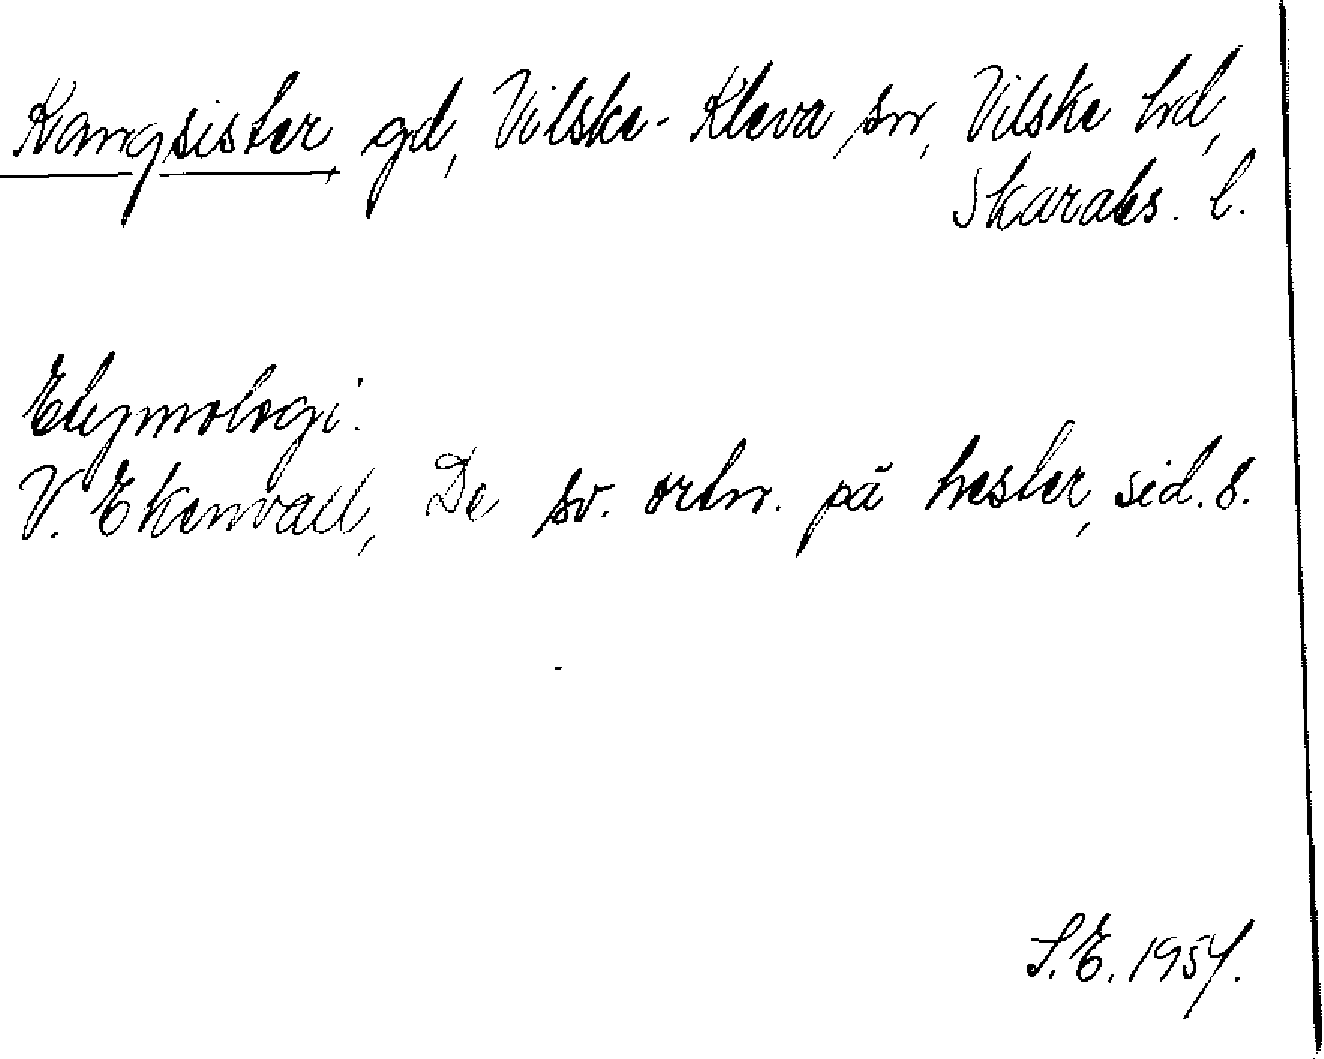 Kangsister, gd, Vilske-Kleva sn, Vilske hd,
Skarabs. l.
Etymologi:
V. Ekenvall, De sv. ortn. på hester, sid. 8.
S.E. 1954.